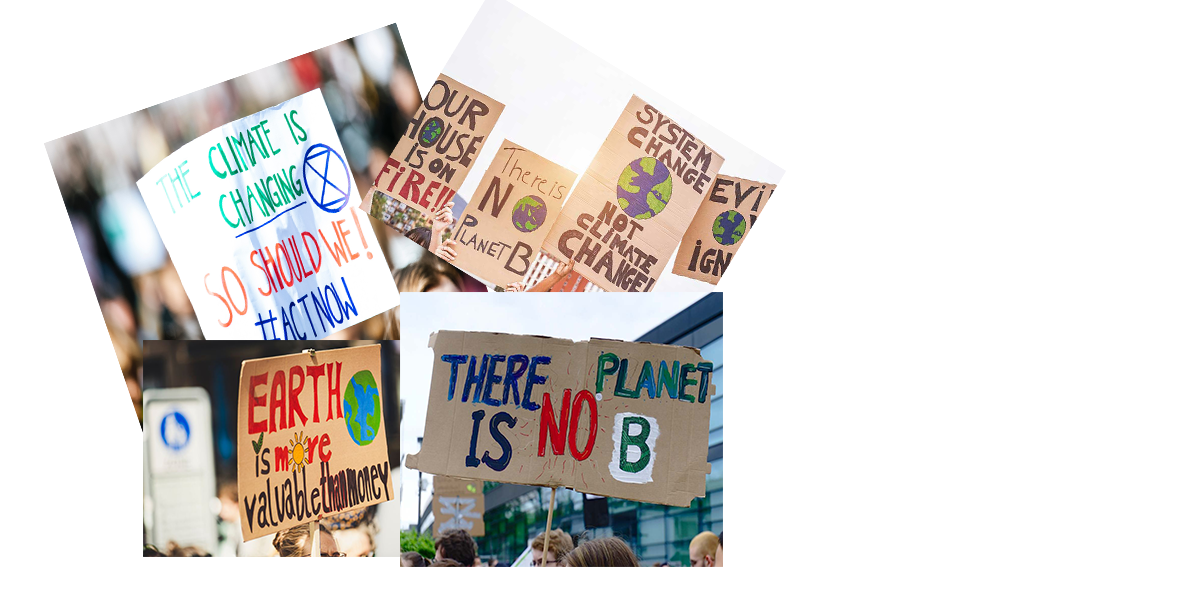 THE CLIMATE IS
CHANGING
SO SHOULD WE!
#ACTNOW
OUR
HOUSE
IS ON
FiRE!!
There is
NO
PLANET B
SYSTEM
CHANGE
NOT
CLIMATE
CHANGE!
EARTH
is more
valuable than money
THERE
IS
NO
PLANET
B